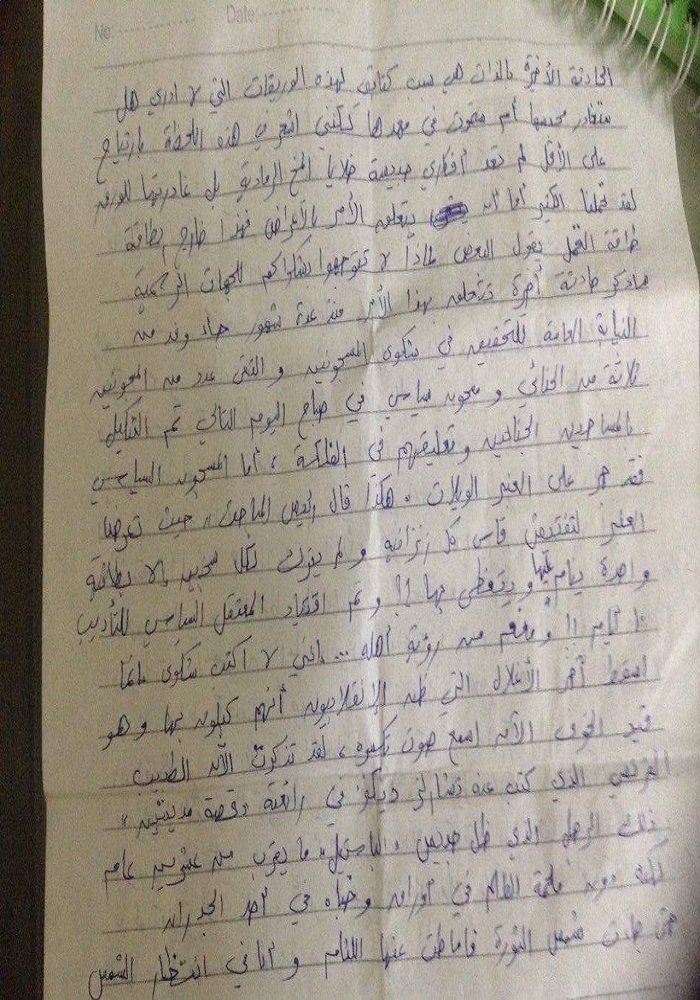 No: Date:
الحادثة الأخيرة بالذات هي سبب كتابتي لهذه الوريقات التي لا ادري هل
ستغادر محبسها أم ستموت في مهدها لكنني اشعر في هذه اللحظة بارتياح
على الأقل لم تعد أفكاري حبيسة خلايا المخ الرمادية بل غادرتها للورقه
لقد تحملنا الكثير أما أن يتعلق الأمر بالأعراض فهذا خارج بطاقة
طاقة التحمل يقول البعض لماذا لا تتوجهوا بشكواكم للجهات الرسمية
سأذكر حادثة أخيرة تتعلق بهذا الأمر منذ عدة شهور جاء وفد من
النيابة العامة للتحقيق في شكوى المسجونين و التقى عدد من المسجونين
ثلاثة من الجنائي و مسجون سياسي في صباح اليوم التالي تم التنكيل
بالمساجين الجنائيين وتعليقهم في الفلكة ، أما المسجون السياسي
فقد جر على العنبر الويلات ، هكذا قال رئيس المباحث ،، حيث تعرضنا
العنبر لتفتيش قاس كل زنزانة و لم يترك لكل سجين إلا بطانية
واحدة ينام عليها ويتغطى بها !! و تم اقتياد المعتقل السياسي للتأديب
١٠ أيام !! و منعه من رؤية أهله ... إنني لا اكتب شكوى إنما
اسقط آخر الأغلال التي ظن الإنقلابيون أنهم كبلونا بها و هو
قيد الخوف الآن اسمع صوت تكسره ، لقد تذكرت الآن الطبيب
الفرنسي الذي كتب عنه تشارلز ديكنز في رائعته «قصة مدينتين»
ذلك الرجل الذي ظل حبيس «الباستيل» ما يقرب من عشرين عام
لكنه دون ملحمة الظالم في أوراقه وخبأه في أحد الجدران
حتى جاءت شمس الثورة فاماطت عنها اللثام و أنا في انتظار الشمس